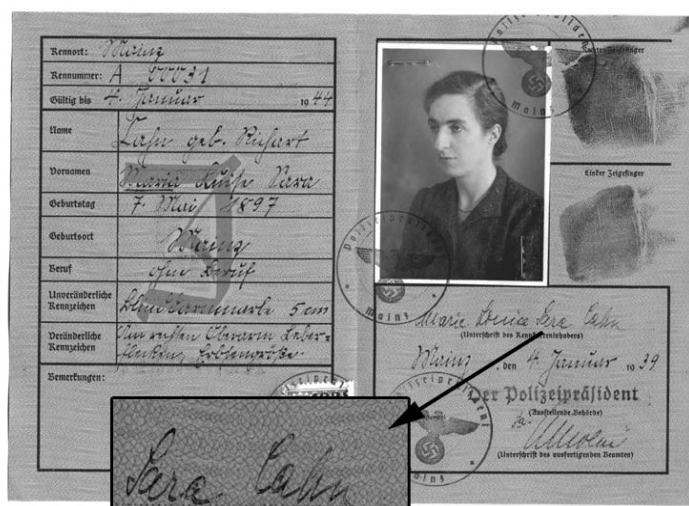 Kennort: Mainz
Kennummer: A 00031
Gültig bis 4. Januar 1944
Name
Cahn geb. Richart
Vornamen
Maria Luise Sara
Geburtstag
7. Mai 1897
Geburtsort
Mainz
Beruf
ohne Beruf
Unveränderliche Kennzeichen
Blinddarmnarbe 5 cm
Veränderliche Kennzeichen
Am rechten Oberarm Leber-
flecken, Erbsengröße.
Bemerkungen:
J
Polizeipräsident
Mainz
Rechter Zeigefinger
Linker Zeigefinger
Polizeipräsident
Mainz
Marie Louise Sara Cahn
(Unterschrift des Kennkarteninhabers)
Mainz, den 4. Januar 1939
Der Polizeipräsident
(Ausstellende Behörde)
(Unterschrift des ausfertigenden Beamten)
Sara Cahn